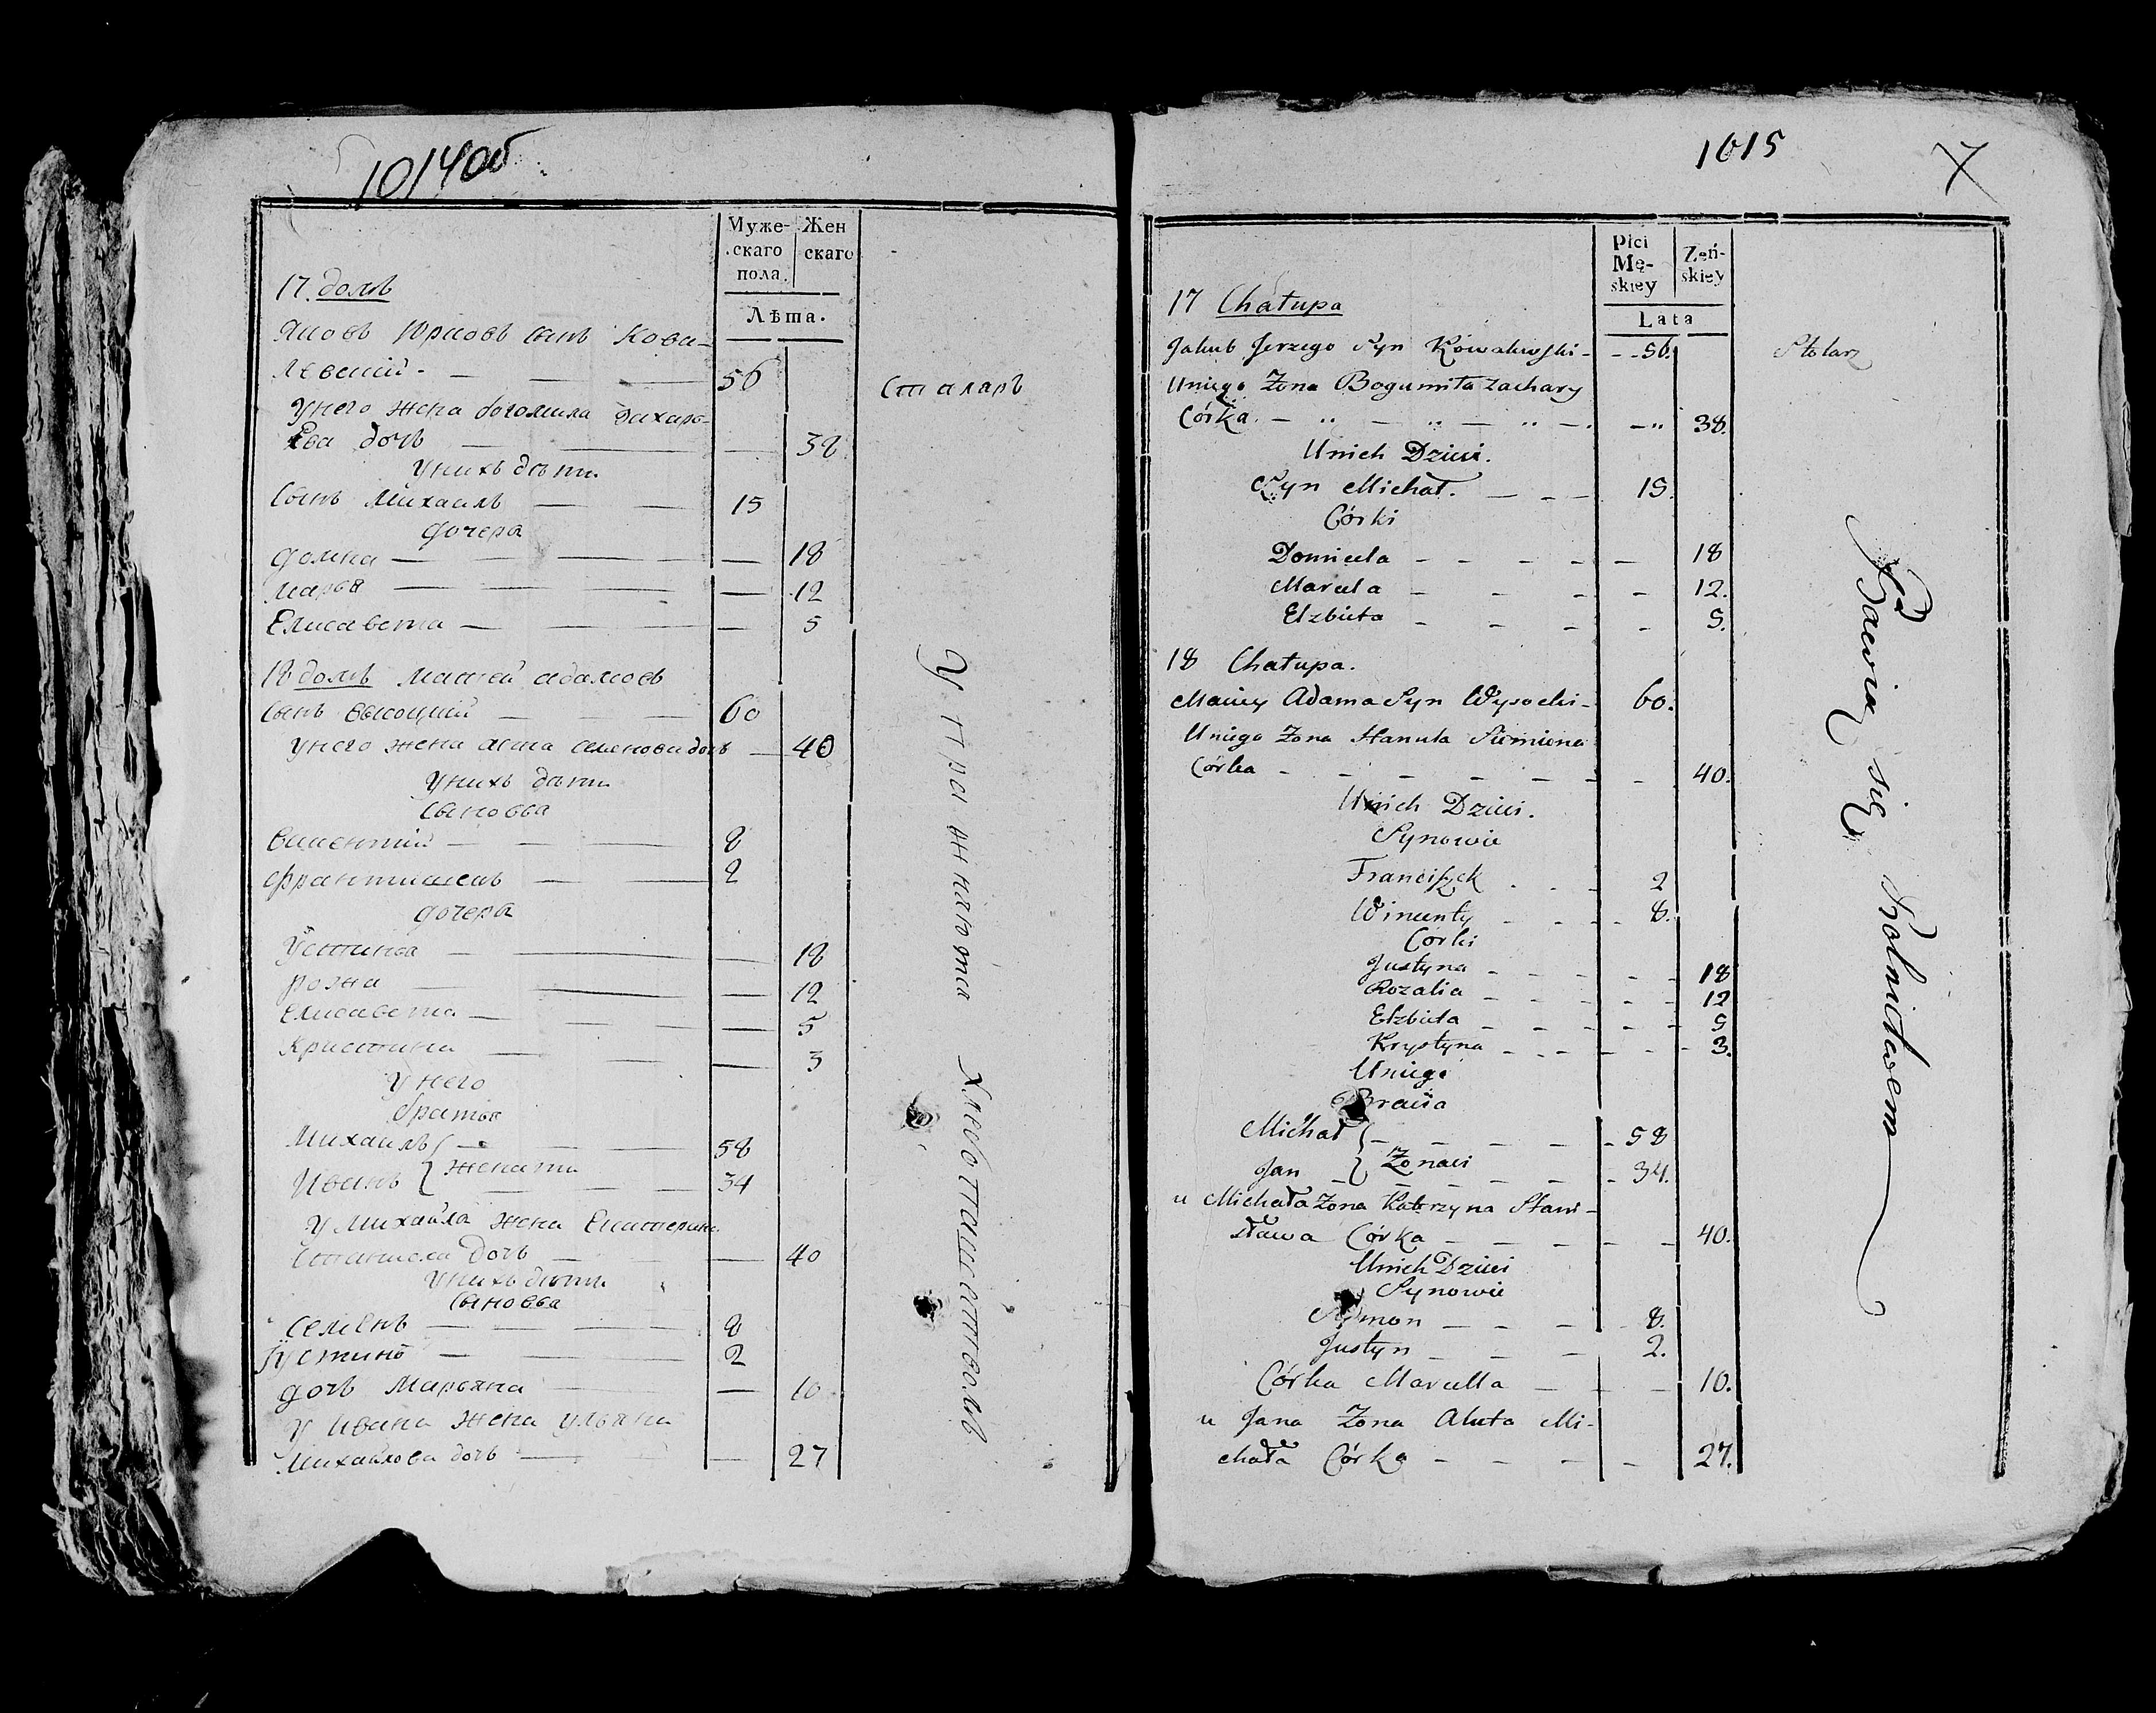 1014об
Муже-
скаго
пола.
Жен
скаго
Лѣта.
17 домъ
Яковъ Юрковъ сынъ Кова-
левский - 56
Сталаръ
Унего жена богомила Захарь-
Ева дочь 38
Унихъ дѣти
Сынъ Михаилъ 15
дочера
домна 18
марья 12
Елисавета 5
18 домъ матей адамовъ
Сынъ высоцкий 60
Унего жена анна семенова дочь 40
Унихъ дѣти
Сыновья
викентий 8
францишекъ 2
дочера
Устинья 18
рожа 12
елисавета 5
христина 3
Унего
братья
Михаилъ 58
Иванъ } женати 34
У Михаила жена Екатерина
Станислава дочь 40
Унихъ дѣти
Сыновья
Семенъ 8
Устинъ 2
дочь Марьяна 10
У ивана жена ульяна
Михайлова дочь 27
Упражняюта Хлебопашествомъ
1015
7
Płci
Mę-
skiey
Zeń-
skiey
Lata
17 Chałupa
Jakub Jerzego Syn Kowalewski - 56.
Stolarz
Uniego Zona Bogumiła Zachary
Córka 38.
Unich Dzieci.
Syn Michał. 15.
Córki
Domicela 18
Marcela 12.
Elzbieta 5.
18 Chałupa.
Maciey Adama Syn Wysocki - 60.
Uniego Zona Hanula Siemiona
Córka 40.
Unich Dzieci.
Synowie
Franciszek 2
Wincenty 8.
Córki
Justyna 18
Rozalia 12
Elzbieta 5
Krystyna 3.
Uniego
Bracia
Michał 58
Jan } Zonaci 34.
u Michała Zona Katrzyna Stani-
sława Córka 40.
Unich Dzieci
Synowie
Symon 8.
Justyn 2.
Córka Marcella 10.
u Jana Zona Aluta Mi-
chała Córka 27.
Bawią się Rolnictwem